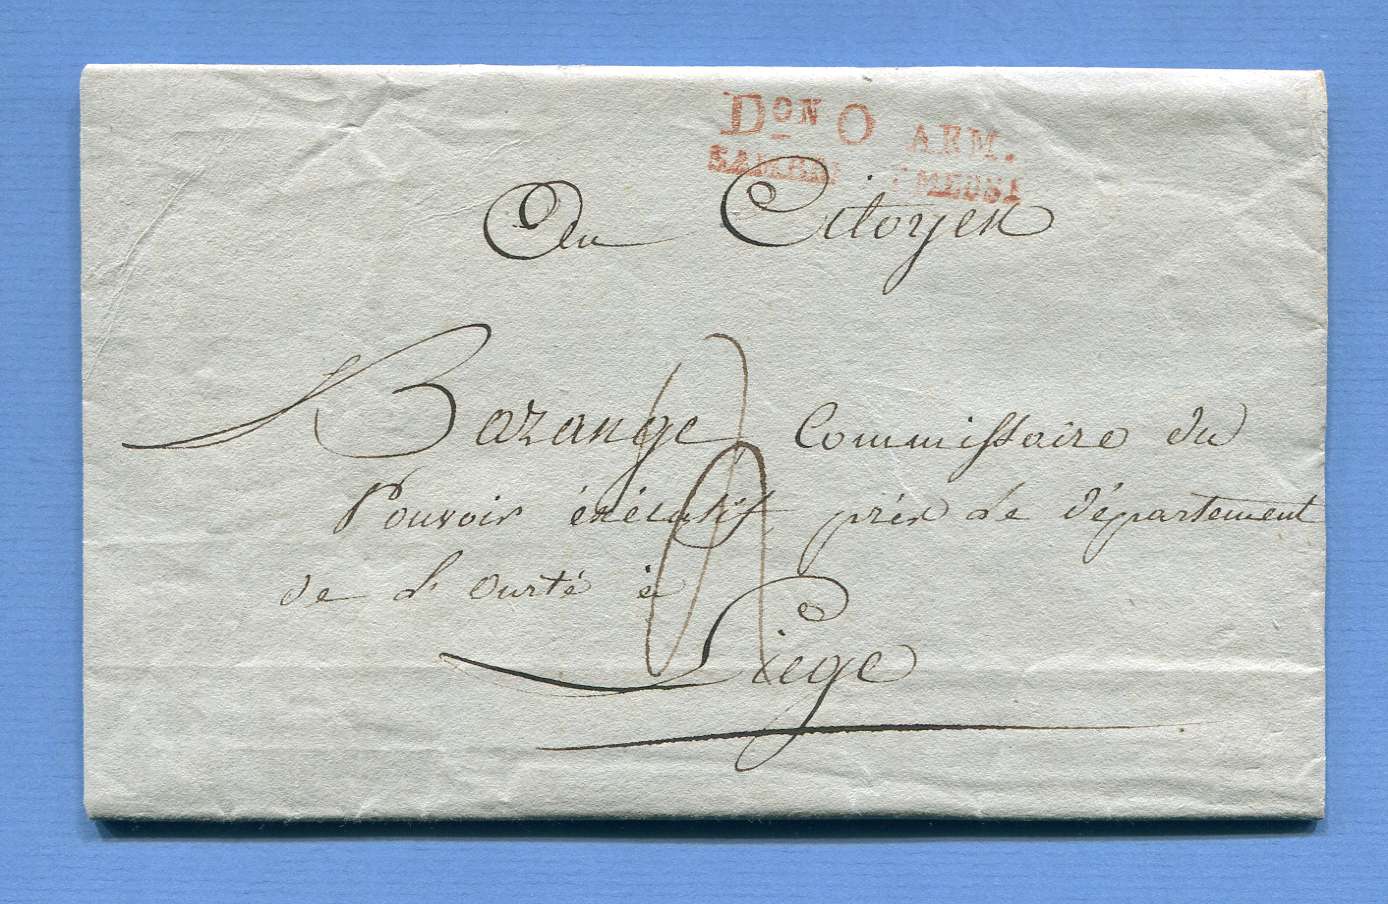 DON O ARM.
SAMBRE ET MEUSE
Au Citoyen
Bazange Commissaire du
Pouvoir éxécutif près Le Département
de L'Ourte à
Liege